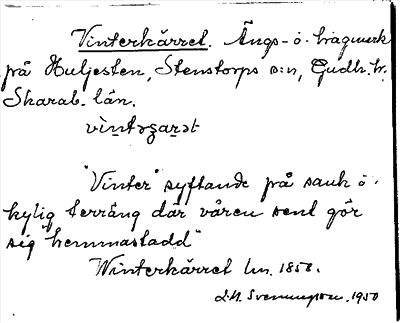 Vinterkärret. Ängs- o. hagmark
på Huljesten, Stenstorps s:n, Gudh. h.
Skarab. län.
vìntərçar̥ət
"Vinter" syftande på sank o.
kylig terräng där våren sent gör
sig hemmastadd"
Winterkärret lm. 1858.
1950